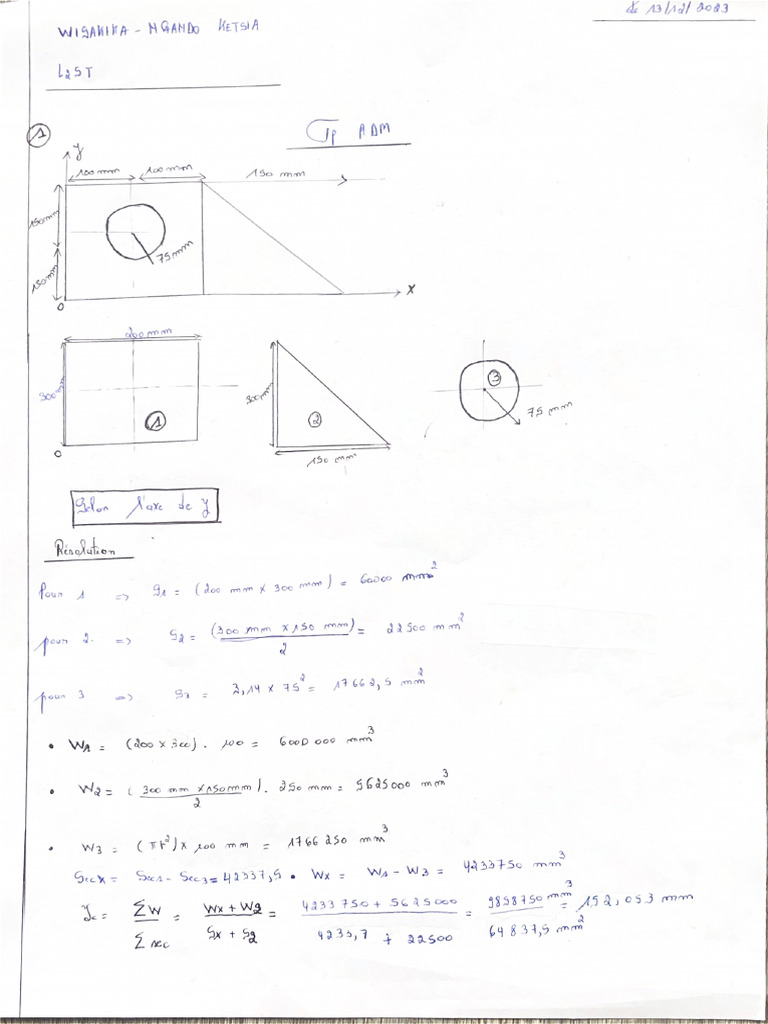 de 13/12/2023
WISAKIKA - NGANDO KETSIA
L2ST
Tp ADM
1
y
100 mm 100 mm 150 mm
150 mm
75 mm
150 mm
0
x
200 mm
300 mm
1
0
300 mm
2
150 mm
3
75 mm
Selon l'axe de y
Résolution
Pour 1 => S1 = (200 mm x 300 mm) = 60000 mm²
pour 2. => S2 = (300 mm x 150 mm)/2 = 22500 mm²
pour 3 => S3 = 3,14 x 75² = 17662,5 mm²
• W1 = (200 x 300) . 100 = 6000 000 mm³
• W2 = (300 mm x 150 mm)/2 . 250 mm = 5625000 mm³
• W3 = (πr²) x 100 mm = 1766 250 mm³
Secx = Sec1 - Sec3 = 42337,5 • Wx = W1 - W3 = 4233750 mm³
= ΣW / Σ sec = Wx + W2 / Sx + S2 = 4233 750 + 5625000 / 4233,7 + 22500 = 9858750 mm³ / 64 837,5 mm² = 152,053 mm